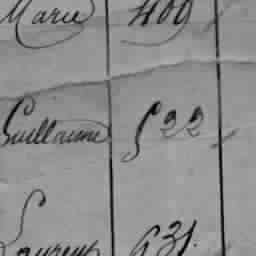 Marie 409
Guillaume 522
Laurent 631.